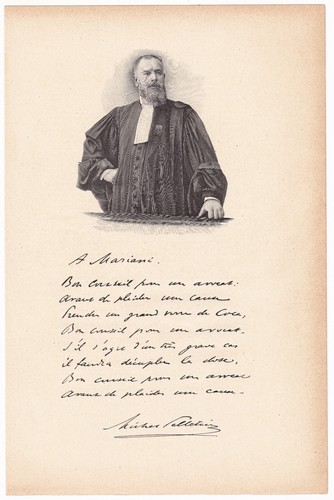 A Mariani.
Bon conseil pour un avocat:
Avant de plaider une cause
Prendre un grand verre de Coca,
Bon conseil pour un avocat.
S'il s'agit d'un très grave cas
il faudra décupler la dose.
Bon conseil pour un avocat
Avant de plaider une cause.